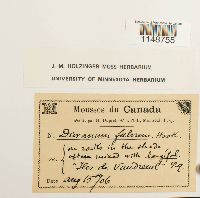 1148755
J. M. HOLZINGER MOSS HERBARIUM
UNIVERSITY OF MINNESOTA HERBARIUM
Mousses du Canada
D. Dicranum fulvum, Hook.
on rocks in the shade
often mixed with
"Iles de Vaudreuil" P.q.
Date Aug 15 /06